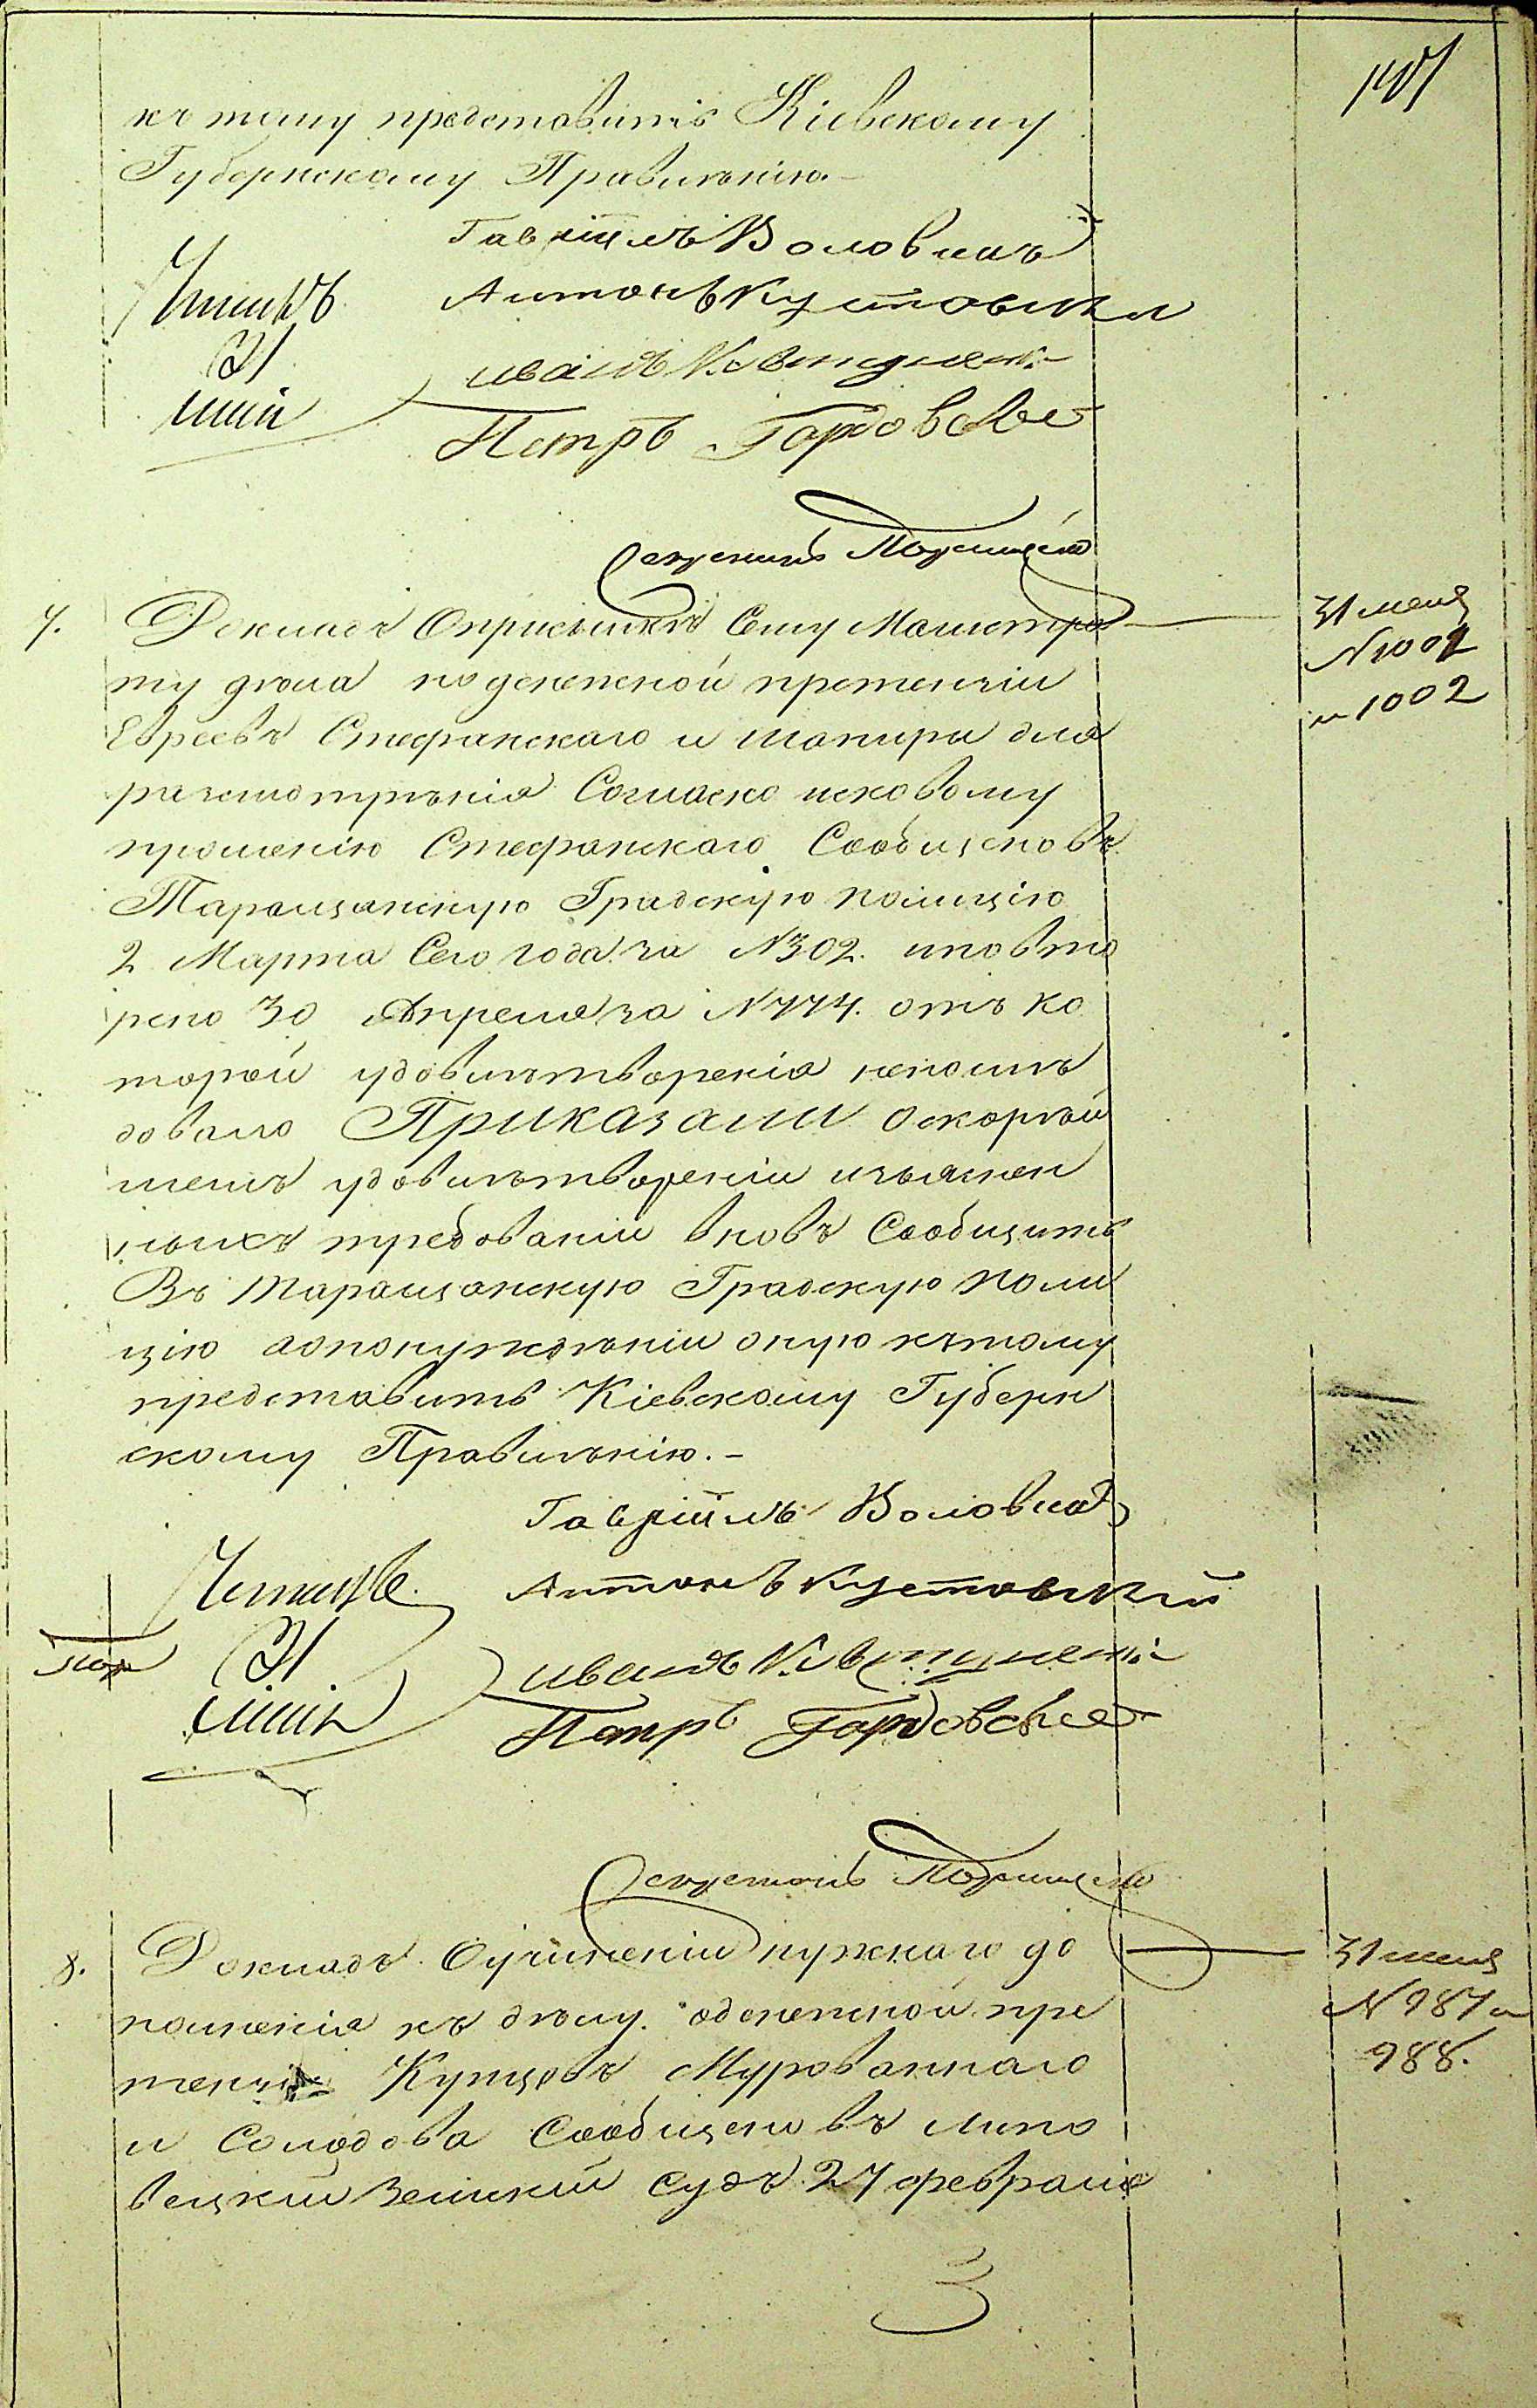 къ тому представить Кіевскому
Губернскому Правленію.-
Гавріилъ Воловикъ
Антонъ Кустовскій
Иванъ
Петръ Гордовскій
Секретарь
7. Докладъ Оприсылкѣ Сему Магистра
ту дѣла поденежной претензіи
Евреевъ Стефанскаго и Шапиры для
разсмотрѣнія Согласно исковому
прошенію Стефанскаго Сообщеновъ
Таращанскую Градскую Полицію
2 Марта Сего года за №302. иповто
рено 30 Апреля за №774. отъ ко
торой удовлѣтворенія непослѣ
довало Приказали оскорѣй
шемъ удовлѣтвореніи изъяснен
ныхъ требованій вновъ Сообщить
Въ Таращанскую Градскую Поли
цію аопонужденіи оную кътому
представить Кіевскому Губерн
скому Правленію.-
31 мая
№1001
и 1002
Гавріилъ Воловикъ
Антонъ Кустовскій
31
Иванъ
Петръ Гордовскій
Секретарь
8. Докладъ. Оучиненіи нужнаго до
полненія къ дѣлу. оденежной пре
тензіи Купцовъ Мурованнаго
и Солодова Сообщено въ Липо
вецкій Земскій Судъ 27 февраля
31 мая
№987 и
988.